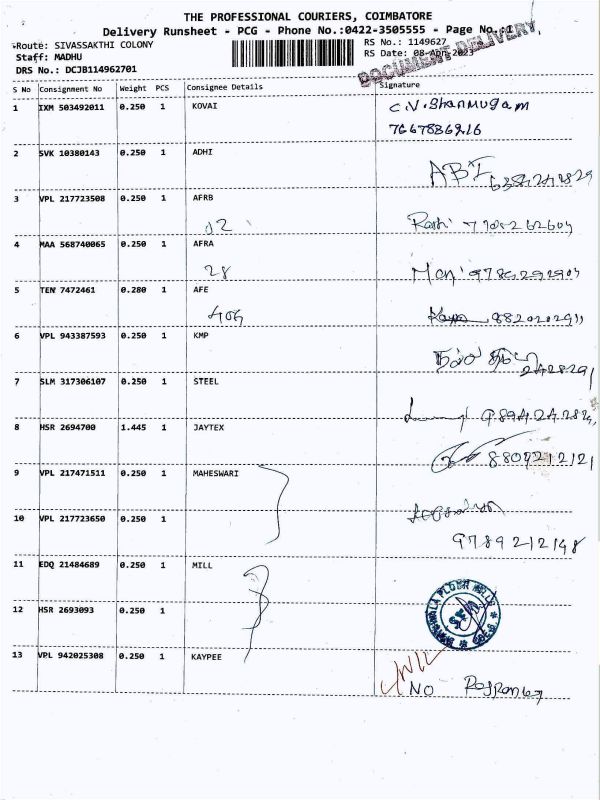 THE PROFESSIONAL COURIERS, COIMBATORE
Delivery Runsheet - PCG - Phone No.:0422-3505555 - Page No.:1
Route: SIVASSAKTHI COLONY
Staff: MADHU
DRS No.: DCJB114962701
RS No.: 1149627
RS Date: 08-Apr-2023
DOCUMENT DELIVERY
S No Consignment No Weight PCS Consignee Details Signature
1 IXM 503492011 0.250 1 KOVAI C.V.Shanmugam
7667886916
2 SVK 10380143 0.250 1 ADHI ABI
3 VPL 217723508 0.250 1 AFRB
02
4 MAA 568740065 0.250 1 AFRA
28
5 TEN 7472461 0.280 1 AFE
404
6 VPL 943387593 0.250 1 KMP
242829
7 SLM 317306107 0.250 1 STEEL
8 HSR 2694700 1.445 1 JAYTEX
9 VPL 217471511 0.250 1 MAHESWARI
10 VPL 217723650 0.250 1
9789212148
11 EDQ 21484689 0.250 1 MILL
12 HSR 2693093 0.250 1
13 VPL 942025308 0.250 1 KAYPEE
NIL
NO